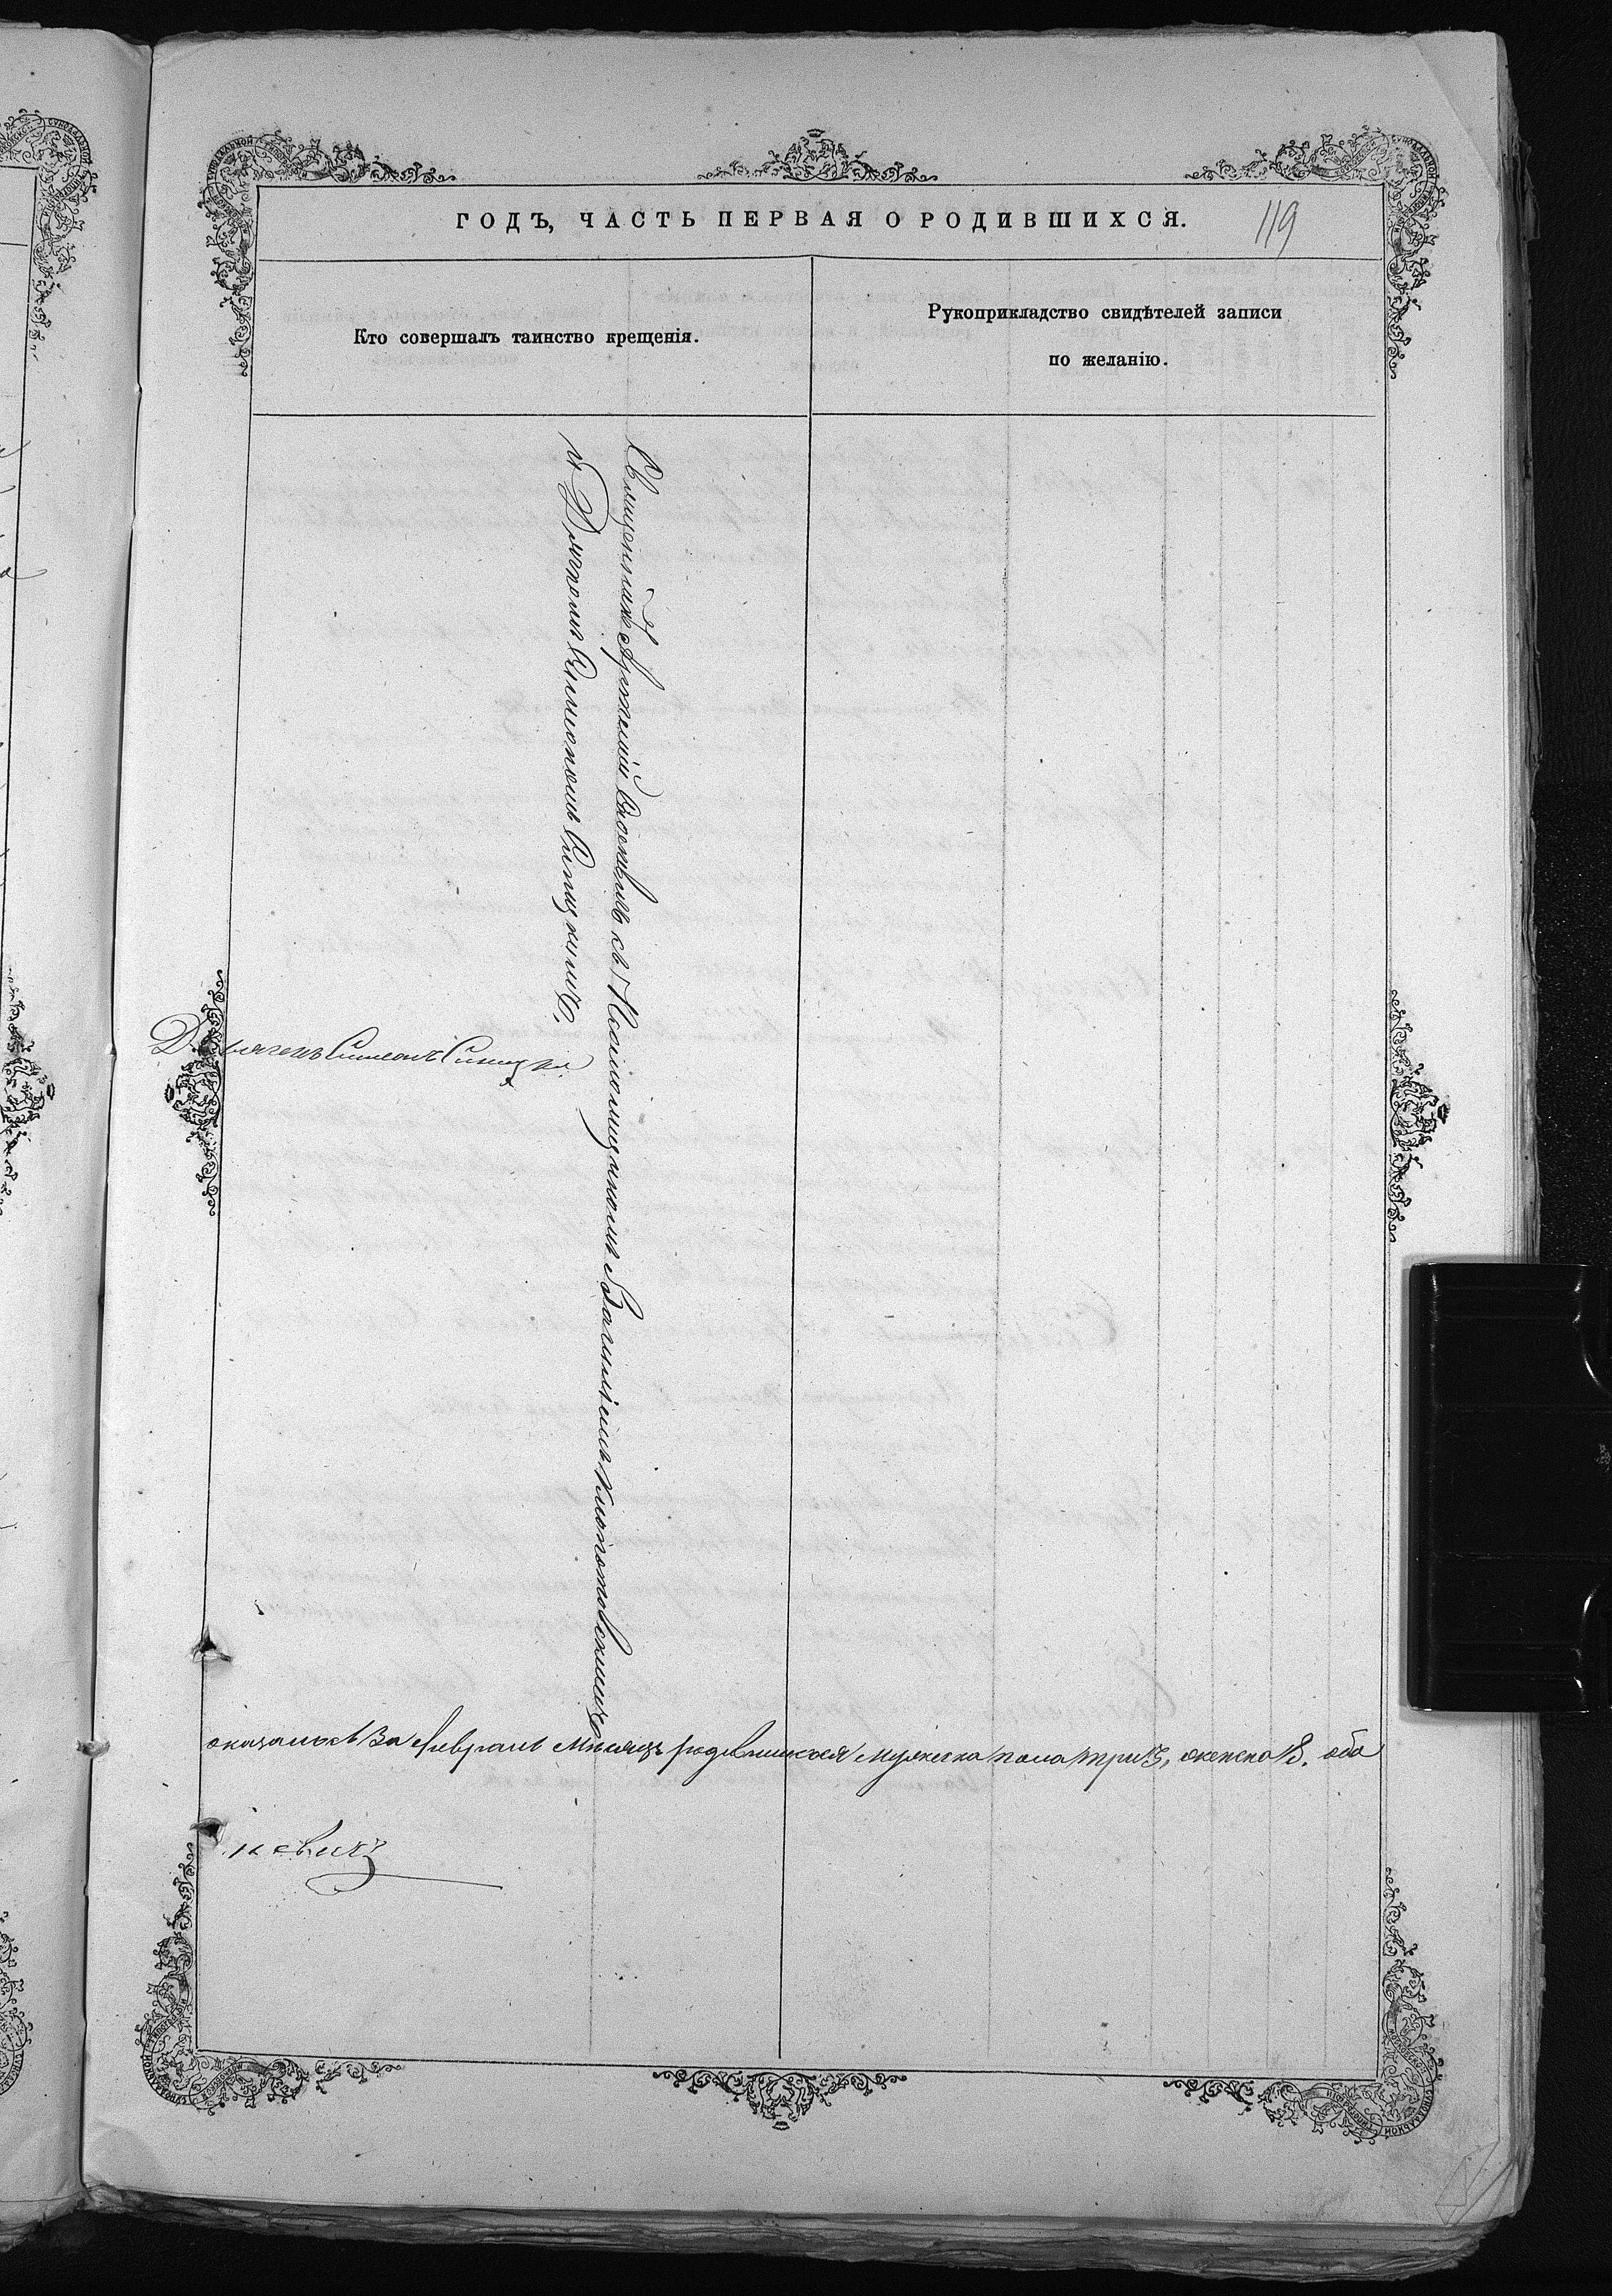 ГОДЪ, ЧАСТЬ ПЕРВАЯ О РОДИВШИХСЯ.
119
Кто совершалъ таинство крещенія.
Рукоприкладство свидѣтелей записи
по желанію.
Священникъ Артемій съ Псаломщикомъ
и Дьякономъ Симеономъ Синицкимъ.
Дьяконъ Симеонъ Синицкій
оказалось За Февраль Мѣсяцъ родившихся мужеска пола три 3, женска обо